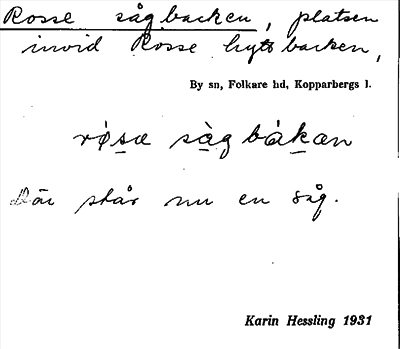 Rosse sågbacken, platsen
invid Rosse hyttbacken,
By sn, Folkare hd, Kopparbergs l.
ròsæ sàgbákæn
Där står nu en såg.
Karin Hessling 1931